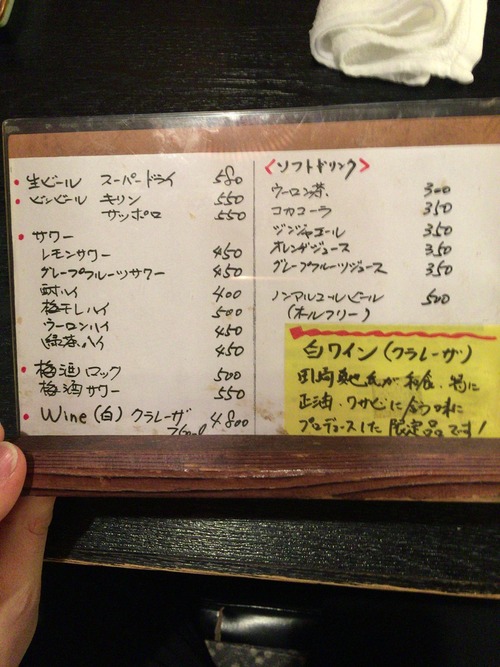 ・生ビール スーパードライ 580
・ビンビール キリン 550
サッポロ 550
・サワー
レモンサワー 450
グレープフルーツサワー 450
酎ハイ 400
梅干しハイ 500
ウーロンハイ 450
緑茶ハイ 450
・梅酒ロック 500
梅酒サワー 550
・Wine (白) クラレーザ 4800
<ソフトドリンク>
ウーロン茶 300
コカコーラ 350
ジンジャエール 350
オレンヂジュース 350
グレープフルーツジュース 350
ノンアルコールビール 500
(オールフリー)
白ワイン (クラレーザ)
田崎真也氏が和食、特に
正油、ワサビに合う味に
プロデュースした限定品です!